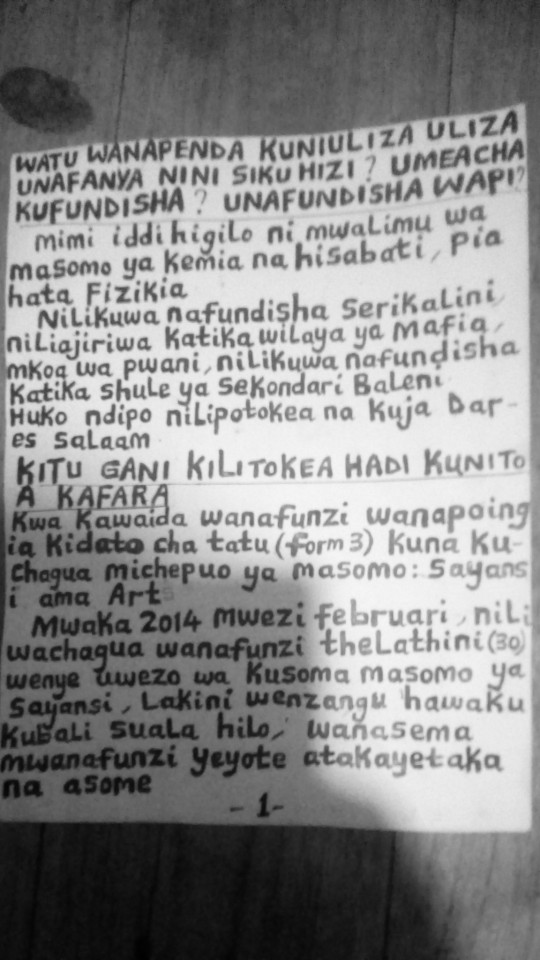 WATU WANAPENDA KUNIULIZA ULIZA
UNAFANYA NINI SIKU HIZI? UMEACHA
KUFUNDISHA? UNAFUNDISHA WAPI?
mimi iddi higilo ni mwalimu wa
masomo ya kemia na hisabati, pia
hata Fizikia
Nilikuwa nafundisha Serikalini,
niliajiriwa katika wilaya ya mafia,
mkoa wa pwani, nilikuwa nafundisha
katika shule ya sekondari Baleni.
Huko ndipo nilipotokea na kuja Dar-
es salaam
KITU GANI KILITOKEA HADI KUNITO
A KAFARA
Kwa kawaida wanafunzi wanapoing
ia kidato cha tatu (form 3) kuna ku-
chagua michepuo ya masomo: Sayans
i ama Arts
Mwaka 2014 mwezi februari, nili
wachagua wanafunzi thelathini (30)
wenye uwezo wa kusoma masomo ya
Sayansi, Lakini wenzangu hawaku
kubali suala hilo, wanasema
mwanafunzi yeyote atakayetaka
na asome
- 1-